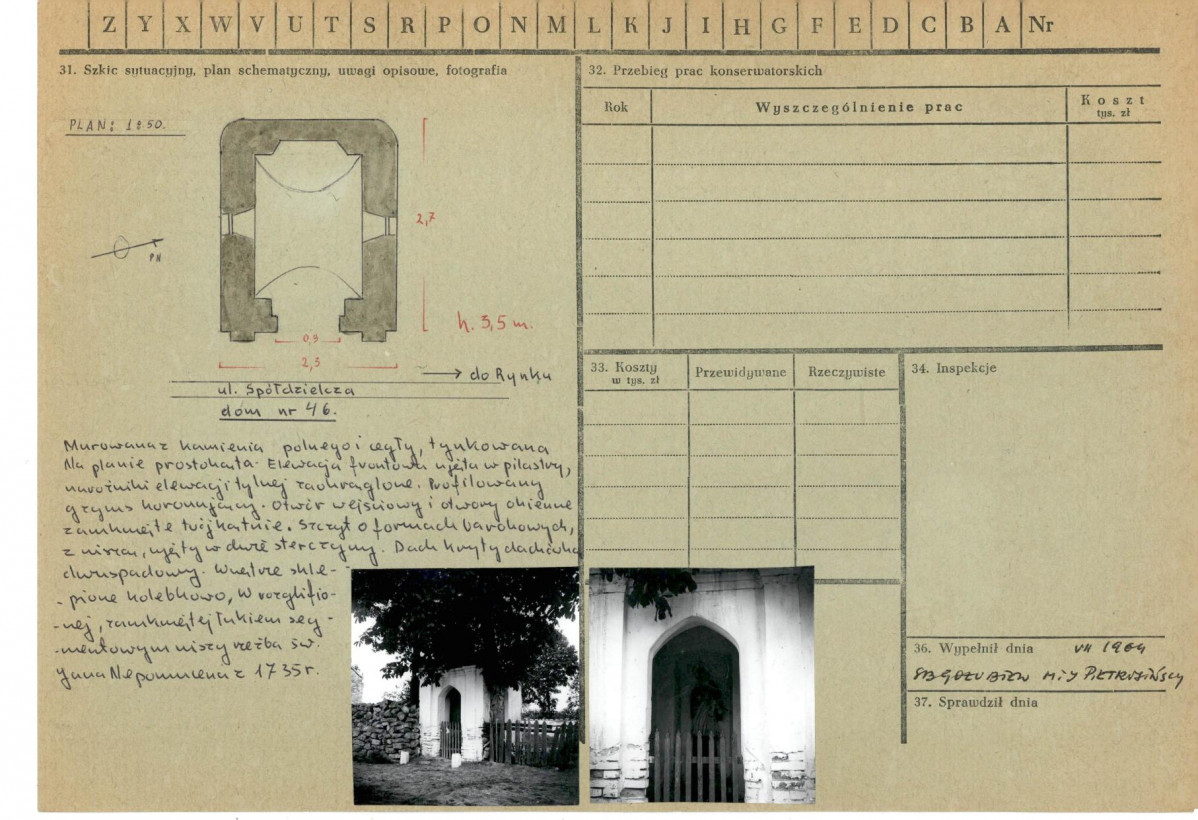 Z Y X W V U T S R P O N M L K J I H G F E D C B A Nr
31. Szkic sytuacyjny, plan schematyczny, uwagi opisowe, fotografia
PLAN: 1:50.
2,7
PN
h. 3,5 m.
0,9
2,3
do Rynku
ul. Spółdzielcza
dom nr 46.
Murowana z kamienia polnego i cegły, tynkowana
Na planie prostokąta. Elewacja frontowa ujęta w pilastry,
narożniki elewacji tylnej zaokrąglone. Profilowany
gzyms koronujący. Otwór wejściowy i otwory okienne
zamknięte trójkątnie. Szczyt o formach barokowych,
z niszą, ujęty w dwie sterczyny. Dach kryty dachówką
dwuspadowy. Wnętrze skle-
-pione kolebkowo, w rozglifio-
-nej, zamkniętej łukiem seg-
-mentowym niszy rzeźba św.
Jana Nepomucena z 1735 r.
32. Przebieg prac konserwatorskich
Rok
Wyszczególnienie prac
Koszt
tys. zł
33. Koszty
w tys. zł
Przewidywane
Rzeczywiste
34. Inspekcje
36. Wypełnił dnia VII 1964
37. Sprawdził dnia